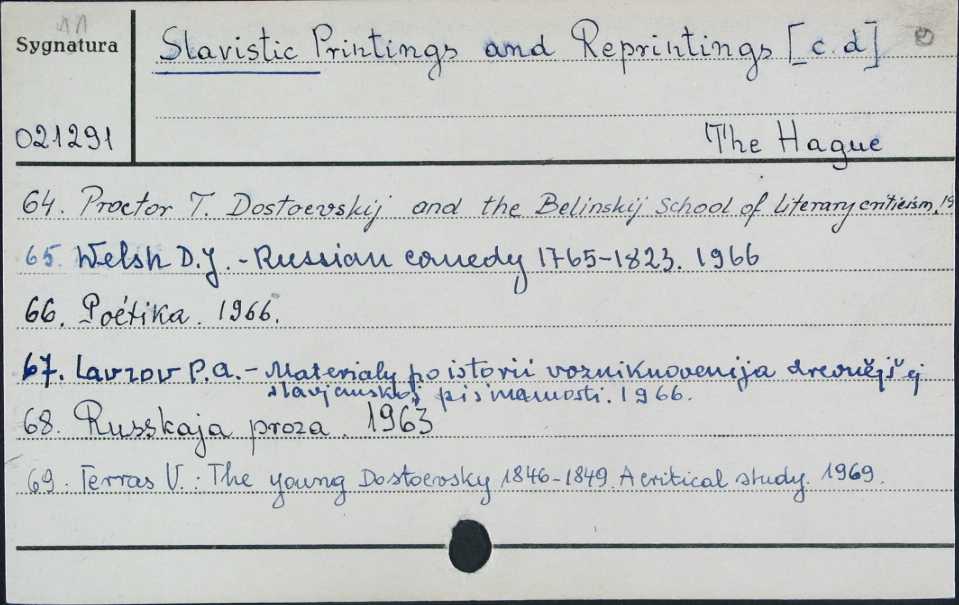 11
Sygnatura
Slavistic Printings and Reprintings [c.d]
021291
The Hague
64. Proctor T. Dostoevskij and the Belinskij School of Literary criticism, 19
65. Welsh D.J. - Russian comedy 1765-1823. 1966
66. Poétika. 1966.
67. Lavrov P.A. - Materialy po istorii vozniknovenija drevnějšej
slavjanskoj pis'mennosti. 1966.
68. Russkaja proza. 1963
69. Terras V.: The young Dostoevsky 1846-1849. A critical study. 1969.